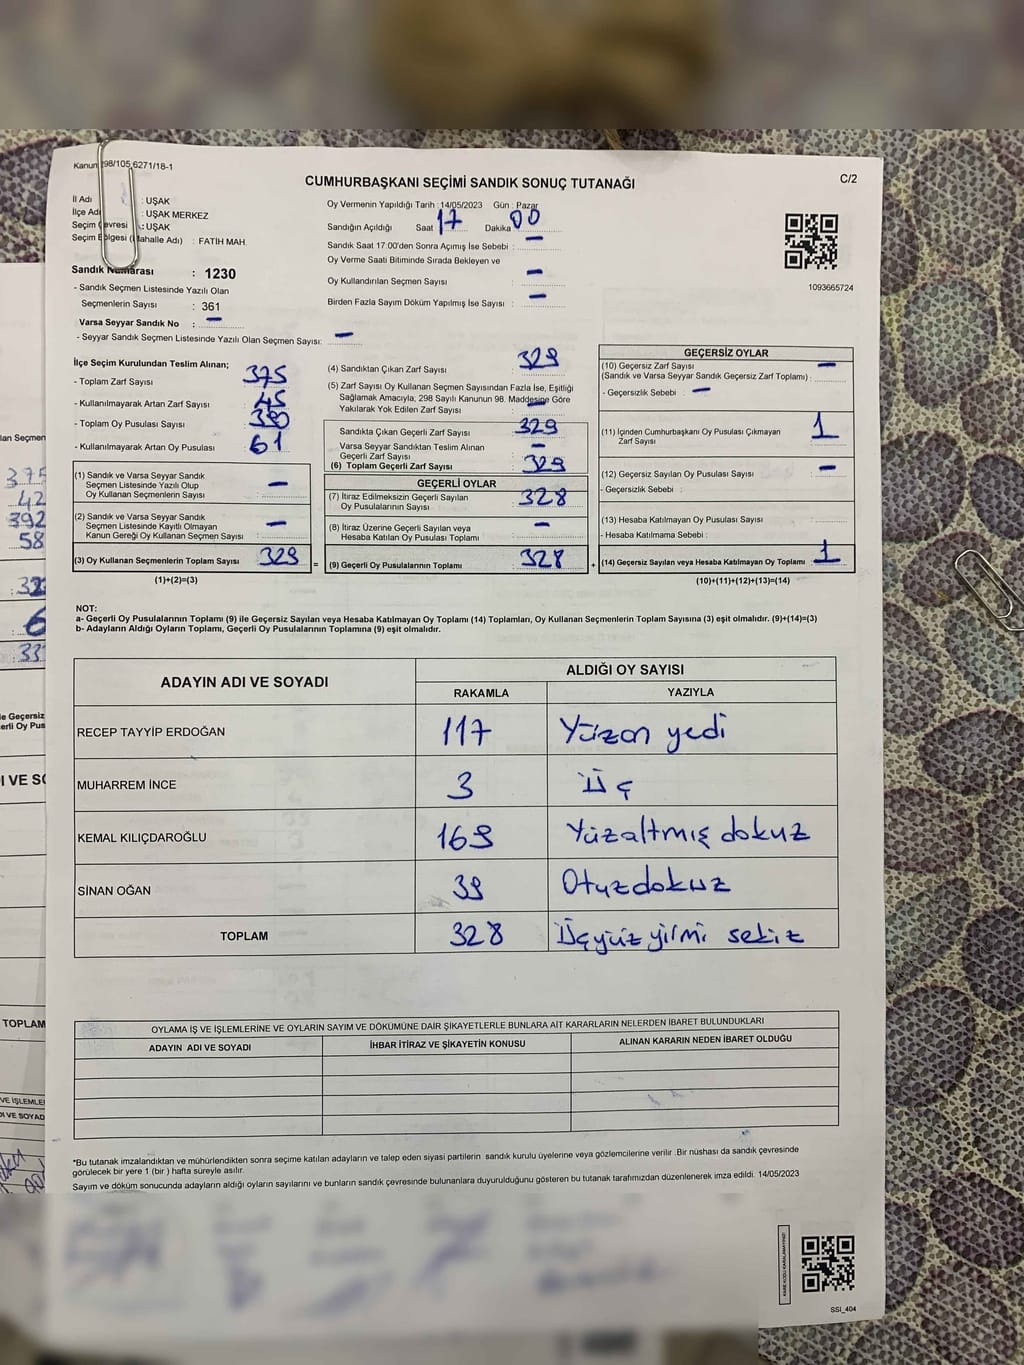 Kanun 298/105,6271/18-1
CUMHURBAŞKANI SEÇİMİ SANDIK SONUÇ TUTANAĞI
C/2
İl Adı : UŞAK
İlçe Adı : UŞAK MERKEZ
Seçim Çevresi : UŞAK
Seçim Bölgesi (Mahalle Adı) : FATİH MAH.
Sandık Numarası : 1230
- Sandık Seçmen Listesinde Yazılı Olan
Seçmenlerin Sayısı : 361
Varsa Seyyar Sandık No : –
- Seyyar Sandık Seçmen Listesinde Yazılı Olan Seçmen Sayısı: –
Oy Vermenin Yapıldığı Tarih : 14/05/2023 Gün : Pazar
Sandığın Açıldığı Saat 17 Dakika 00
Sandık Saat 17:00'den Sonra Açımış İse Sebebi : –
Oy Verme Saati Bitiminde Sırada Bekleyen ve
Oy Kullandırılan Seçmen Sayısı : –
Birden Fazla Sayım Döküm Yapılmış İse Sayısı : –
1093665724
İlçe Seçim Kurulundan Teslim Alınan;
- Toplam Zarf Sayısı 375
- Kullanılmayarak Artan Zarf Sayısı 45
- Toplam Oy Pusulası Sayısı
- Kullanılmayarak Artan Oy Pusulası 61
(1) Sandık ve Varsa Seyyar Sandık
Seçmen Listesinde Yazılı Olup
Oy Kullanan Seçmenlerin Sayısı : –
(2) Sandık ve Varsa Seyyar Sandık
Seçmen Listesinde Kayıtlı Olmayan
Kanun Gereği Oy Kullanan Seçmen Sayısı : –
(3) Oy Kullanan Seçmenlerin Toplam Sayısı 329
(1)+(2)=(3)
(4) Sandıktan Çıkan Zarf Sayısı : 329
(5) Zarf Sayısı Oy Kullanan Seçmen Sayısından Fazla İse, Eşitliği
Sağlamak Amacıyla, 298 Sayılı Kanunun 98. Maddesine Göre
Yakılarak Yok Edilen Zarf Sayısı : –
Sandıkta Çıkan Geçerli Zarf Sayısı : 329
Varsa Seyyar Sandıktan Teslim Alınan
Geçerli Zarf Sayısı : –
(6) Toplam Geçerli Zarf Sayısı : 329
GEÇERLİ OYLAR
(7) İtiraz Edilmeksizin Geçerli Sayılan
Oy Pusulalarının Sayısı : 328
(8) İtiraz Üzerine Geçerli Sayılan veya
Hesaba Katılan Oy Pusulası Toplamı : –
= (9) Geçerli Oy Pusulalarının Toplamı : 328
GEÇERSİZ OYLAR
(10) Geçersiz Zarf Sayısı –
(Sandık ve Varsa Seyyar Sandık Geçersiz Zarf Toplamı) :
- Geçersizlik Sebebi : –
(11) İçinden Cumhurbaşkanı Oy Pusulası Çıkmayan
Zarf Sayısı : 1
(12) Geçersiz Sayılan Oy Pusulası Sayısı : –
- Geçersizlik Sebebi :
(13) Hesaba Katılmayan Oy Pusulası Sayısı :
- Hesaba Katılmama Sebebi :
+ (14) Geçersiz Sayılan veya Hesaba Katılmayan Oy Toplamı : 1
(10)+(11)+(12)+(13)=(14)
NOT:
a- Geçerli Oy Pusulalarının Toplamı (9) ile Geçersiz Sayılan veya Hesaba Katılmayan Oy Toplamı (14) Toplamları, Oy Kullanan Seçmenlerin Toplam Sayısına (3) eşit olmalıdır. (9)+(14)=(3)
b- Adayların Aldığı Oyların Toplamı, Geçerli Oy Pusulalarının Toplamına (9) eşit olmalıdır.
ADAYIN ADI VE SOYADI ALDIĞI OY SAYISI
RAKAMLA YAZIYLA
RECEP TAYYİP ERDOĞAN 117 Yüzon yedi
MUHARREM İNCE 3 Üç
KEMAL KILIÇDAROĞLU 169 Yüzaltmış dokuz
SİNAN OĞAN 39 Otuzdokuz
TOPLAM 328 Üçyüz yirmi sekiz
OYLAMA İŞ VE İŞLEMLERİNE VE OYLARIN SAYIM VE DÖKÜMÜNE DAİR ŞİKAYETLERLE BUNLARA AİT KARARLARIN NELERDEN İBARET BULUNDUKLARI
ADAYIN ADI VE SOYADI İHBAR İTİRAZ VE ŞİKAYETİN KONUSU ALINAN KARARIN NEDEN İBARET OLDUĞU
*Bu tutanak imzalandıktan ve mühürlendikten sonra seçime katılan adayların ve talep eden siyasi partilerin sandık kurulu üyelerine veya gözlemcilerine verilir .Bir nüshası da sandık çevresinde
görülecek bir yere 1 (bir ) hafta süreyle asılır.
Sayım ve döküm sonucunda adayların aldığı oyların sayılarını ve bunların sandık çevresinde bulunanlara duyurulduğunu gösteren bu tutanak tarafımızdan düzenlenerek imza edildi. 14/05/2023
SSI_404
lan Seçmen
375
42
392
58
le Geçersiz
erli Oy Pus
I VE SO
TOPLAM
VE İŞLEMLE
DI VE SOYAD